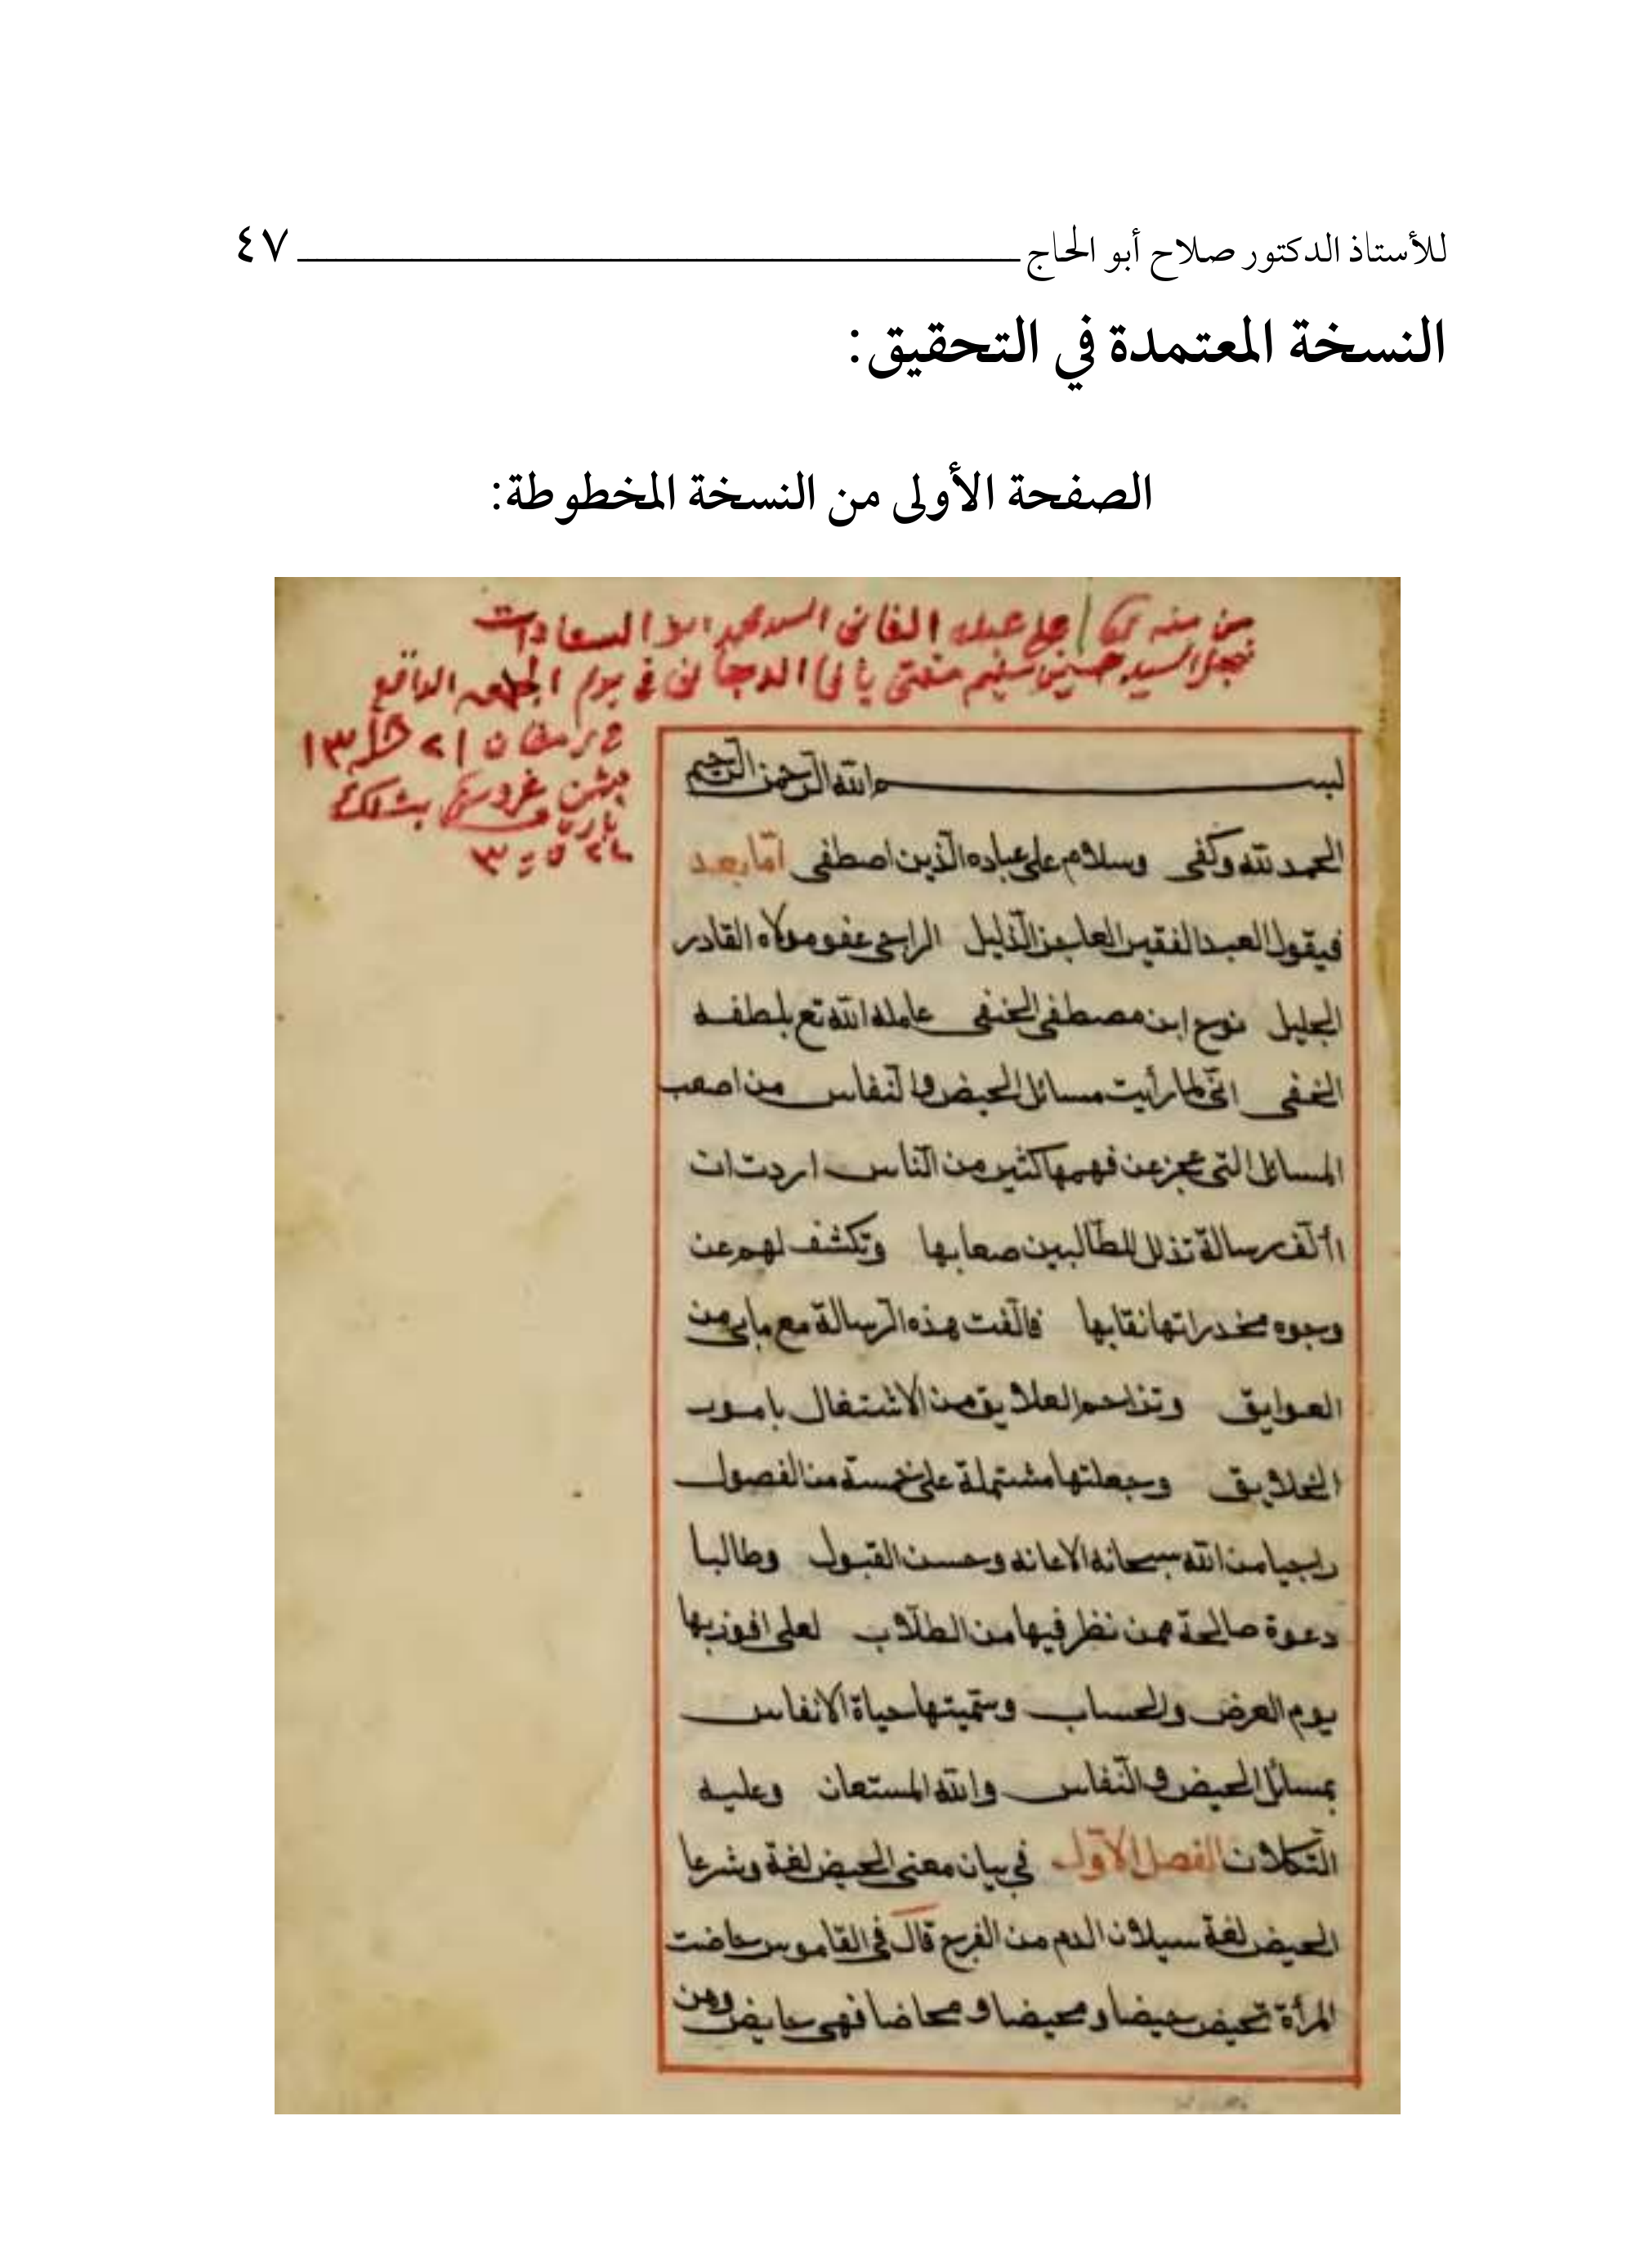 للأستاذ الدكتور صلاح أبو الحاج ٤٧
النسخة المعتمدة في التحقيق:
الصفحة الأولى من النسخة المخطوطة:
من منه على عبده الفانى السيد محمد ابو السعادات
نجل السيد حسين سليم مفتى يافا الدجانى في يوم الجمعه الواقع
رمضان
بسم الله الرحمن الرحيم
الحمد لله وكفى وسلام على عباده الذين اصطفى امّا بعد
فيقول العبد الفقير العاجز الذليل الراجى عفو مولاه القادر
الجليل نوح ابن مصطفى الحنفى عامله الله تع بلطفه
الخفى انّى لما رأيت مسائل الحيض والنفاس من اصعب
المسائل التى عجز عن فهمها كثير من الناس اردت ان
األّف رسالة تذلل للطالبين صعابها وتكشف لهم عن
وجوه مخدراتها نقابها فالّفت هذه الرسالة مع مابى من
العوايق وتزاحم العلايق من الاشتغال بامور
الخلايق وجعلتها مشتملة على خمسة من الفصول
راجيا من الله سبحانه الاعانه وحسن القبول وطالبا
دعوة صالحة ممن نظر فيها من الطلّاب لعلى افوز بها
يوم العرض والحساب وسمّيتها حياة الانفاس
بمسائل الحيض والنّفاس والله المستعان وعليه
التّكلان الفصل الاوّل في بيان معنى الحيض لغة وشرعا
الحيض لغة سيلان الدم من الفرج قال فى القاموس حاضت
المرأة تحيض حيضا ومحيضا ومحاضا فهى حايض ومن